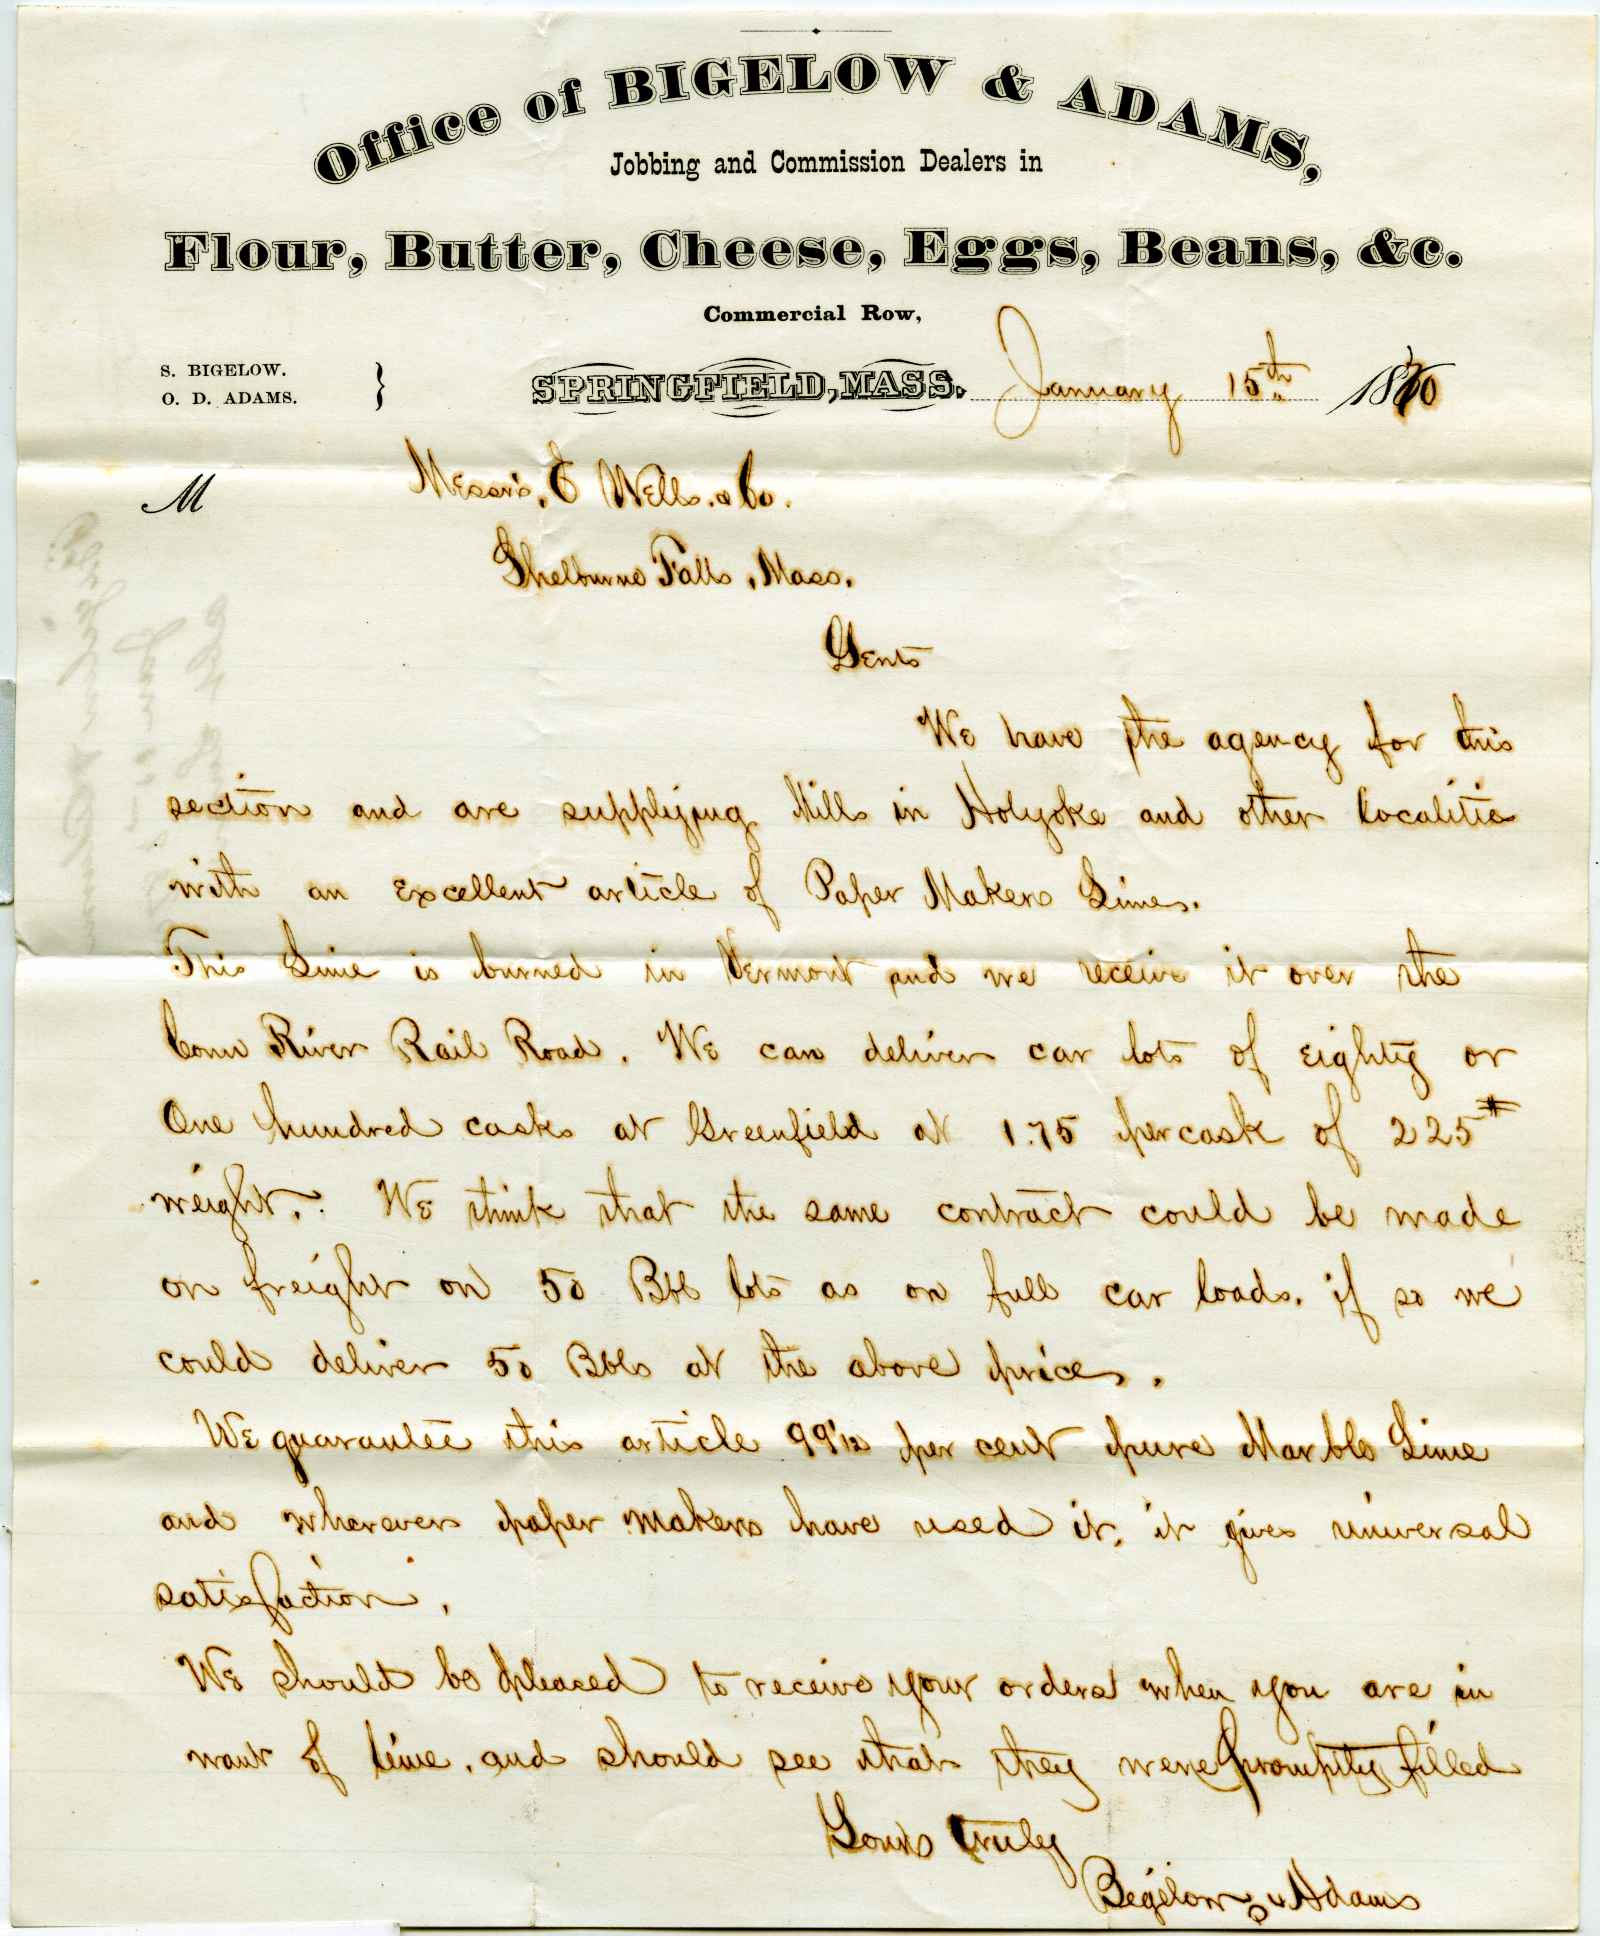 Office of BIGELOW & ADAMS,
Jobbing and Commission Dealers in
Flour, Butter, Cheese, Eggs, Beans, &c.
Commercial Row,
S. BIGELOW.
O. D. ADAMS. }
SPRINGFIELD, MASS. January 15th 1870
M Messrs, E Wells & Co.
Shelburne Falls, Mass.
Gents
We have the agency for this
section and are supplying Mills in Holyoke and other localities
with an Excellent article of Paper Makers Lime.
This Lime is burned in Vermont and we receive it over the
Conn River Rail Road. We can deliver car lots of Eighty or
One hundred casks at Greenfield at 1.75 per cask of 225#
weight. We think that the same contract could be made
on freight on 50 Bbl lots as on full car loads. if so we
could deliver 50 Bbls at the above price.
We guarantee this article 99 1/2 per cent pure Marble Lime
and wherever paper makers have used it, it gives universal
satisfaction.
We should be pleased to receive your orders when you are in
want of lime, and should see that they were promptly filled
Yours truly
Bigelow & Adams